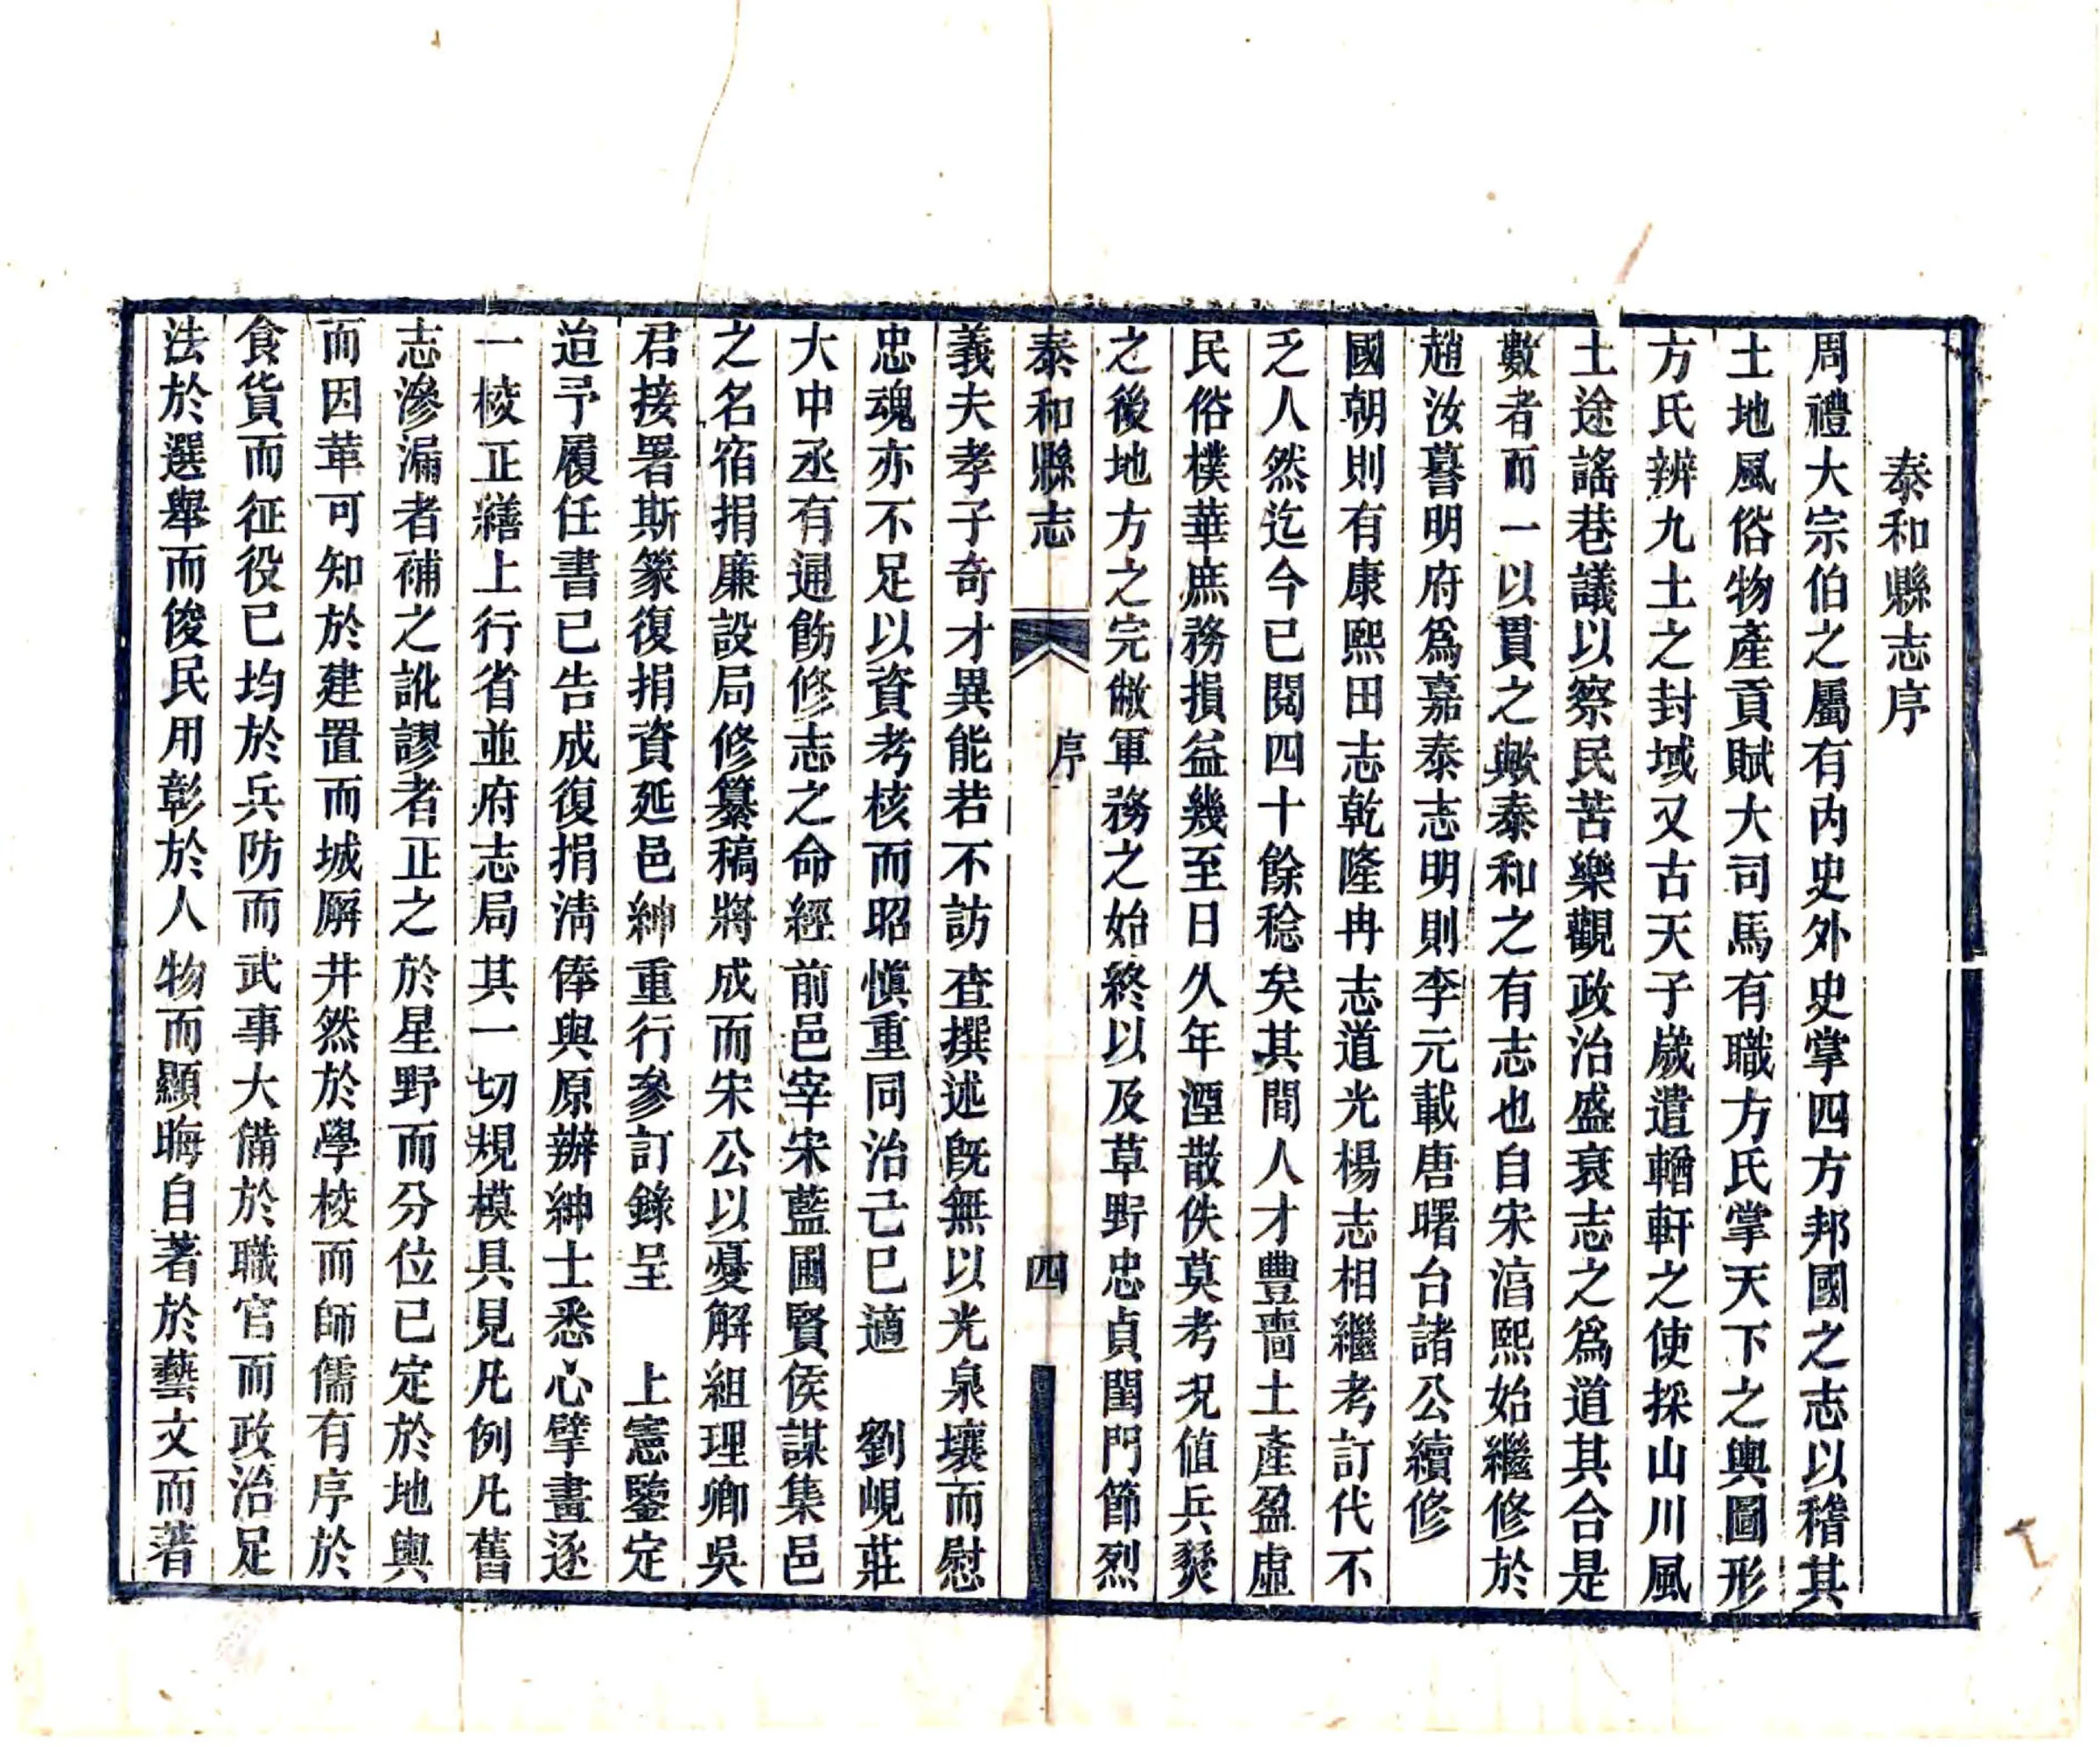 泰和縣志序
周禮大宗伯之屬有內史外史掌四方邦國之志以稽其
土地風俗物產貢賦大司馬有職方氏掌天下之輿圖形
方氏辨九土之封域又古天子歲遣輶軒之使採山川風
土途謠巷議以察民苦樂觀政治盛衰志之爲道其合是
數者而一以貫之歟泰和之有志也自宋淳熙始繼修於
趙汝謩明府爲嘉泰志明則李元載唐曙台諸公續修
國朝則有康熙田志乾隆冉志道光楊志相繼考訂代不
乏人然迄今已閱四十餘稔矣其間人才豐嗇土產盈虛
民俗樸華庶務損益幾至日久年湮散佚莫考況值兵燹
之後地方之完敝軍務之始終以及草野忠貞閨門節烈
泰和縣志
序
四
義夫孝子奇才異能若不訪查撰述旣無以光泉壤而慰
忠魂亦不足以資考核而昭慎重同治己巳適 劉峴莊
大中丞有通飭修志之命經前邑宰宋藍圃賢侯謀集邑
之名宿捐廉設局修纂稿將成而宋公以憂解組理卿吳
君接署斯篆復捐資延邑紳重行參訂錄呈 上憲鑒定
迨予履任書已告成復捐淸俸與原辦紳士悉心擘畫逐
一校正繕上行省並府志局其一切規模具見凡例凡舊
志滲漏者補之訛謬者正之於星野而分位已定於地輿
而因革可知於建置而城廨井然於學校而師儒有序於
食貨而征役已均於兵防而武事大備於職官而政治足
法於選舉而俊民用彰於人物而顯晦自著於藝文而著